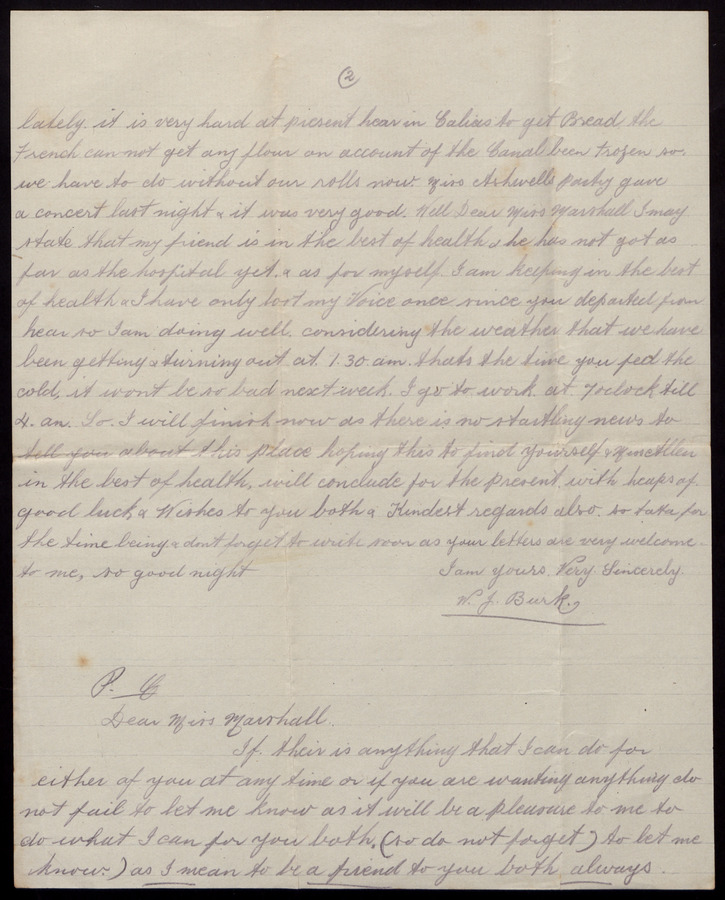 2
lately. it is very hard at present hear in Calias to get Bread, the
French can not get any flour on account of the Canal been Frozen so.
we have to do without our rolls now. Miss Ashwell's party gave
a concert last night & it was very good. Well Dear Miss Marshall I may
state that my friend is in the best of health & he has not got as
far as the hospital yet. & as for myself. I am keeping in the best
of health & I have only lost my Voice once since you departed from
hear so I am doing well. considering the weather that we have
been getting & turning out at 1.30. am. thats the time you feel the
cold, it wont be so bad next week. I go to work at 7oclock till
4. an. So. I will finish now as there is no startling news to
tell you about this place hoping this to find yourself & Miss Allen
in the best of health, will conclude for the present, with heaps of
good luck, & Wishes to you both & Kindest regards also. so tata for
the time being & dont forget to write soon as your letters are very welcome.
to me, so good night I am yours. Very. Sincerely.
W. J. Burk.
P. S
Dear Miss Marshall.
If. their is anything that I can do for
either of you at any time or if you are wanting anything do
not fail to let me know as it will be a pleasure to me to
do what I can for you both. (so do not forget) to let me
know.) as I mean to be a friend to you both always.